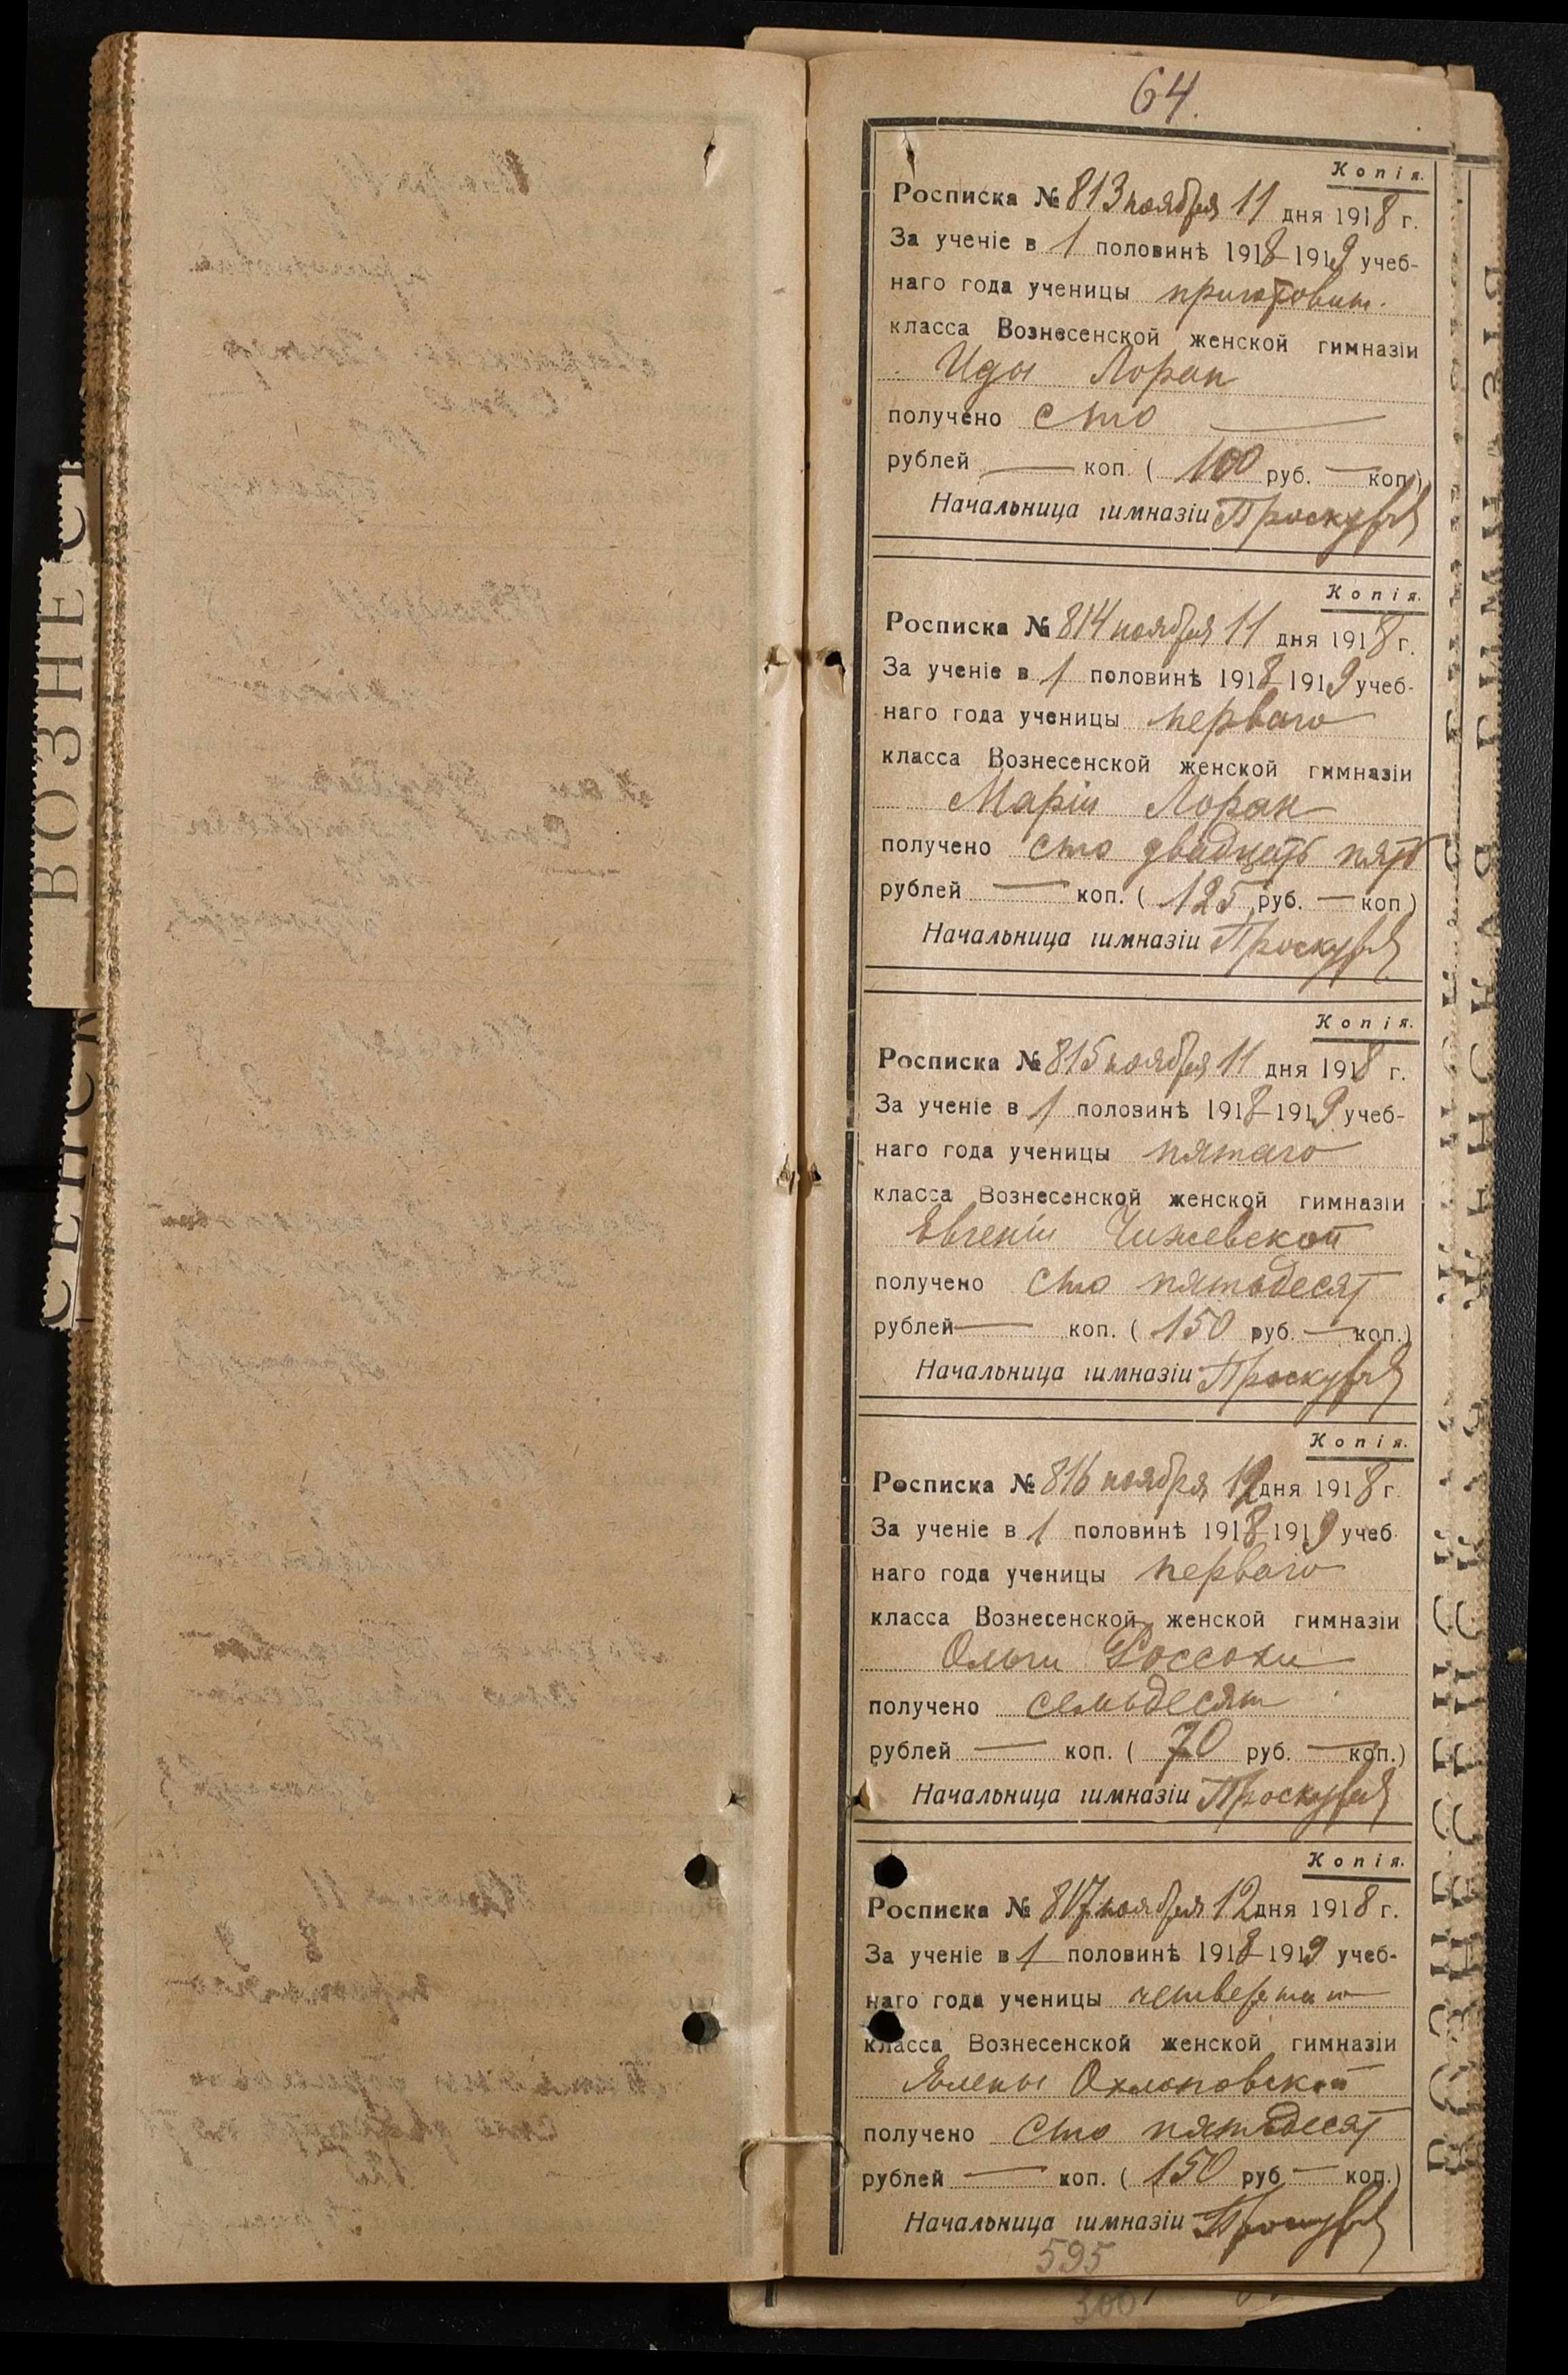 64.
Копія.
Росписка № 813 ноября 11 дня 1918 г.
За ученіе в 1 половинѣ 1918-1919 учеб-
наго года ученицы приготовит.
класса Вознесенской женской гимназіи
Иды Лоран
получено сто
рублей — коп. ( 100 руб. — коп.)
Начальница гимназіи
Копія.
Росписка № 814 ноября 11 дня 1918 г.
За ученіе в 1 половинѣ 1918-1919 учеб-
наго года ученицы перваго
класса Вознесенской женской гимназіи
Маріи Лоран
получено сто двадцать пять
рублей — коп. ( 125 руб. — коп)
Начальница гимназіи
Копія.
Росписка № 815 ноября 11 дня 1918 г.
За ученіе в 1 половинѣ 1918-1919 учеб-
наго года ученицы пятаго
класса Вознесенской женской гимназіи
Евгеніи Чижевской
получено сто пятьдесят
рублей — коп. ( 150 руб. — коп.)
Начальница гимназіи
Копія.
Росписка № 816 ноября 12 дня 1918 г.
За ученіе в 1 половинѣ 1918-1919 учеб-
наго года ученицы перваго
класса Вознесенской женской гимназіи
Ольги Россохи
получено семьдесят
рублей — коп. ( 70 руб. — коп.)
Начальница гимназіи
Копія.
Росписка № 817 ноября 12 дня 1918 г.
За ученіе в 1 половинѣ 1918-1919 учеб-
наго года ученицы четвертаго
класса Вознесенской женской гимназіи
Елены Охлоповской
получено сто пятьдесят
рублей — коп. ( 150 руб — коп.)
Начальница гимназіи
595
300
ВОЗНЕС